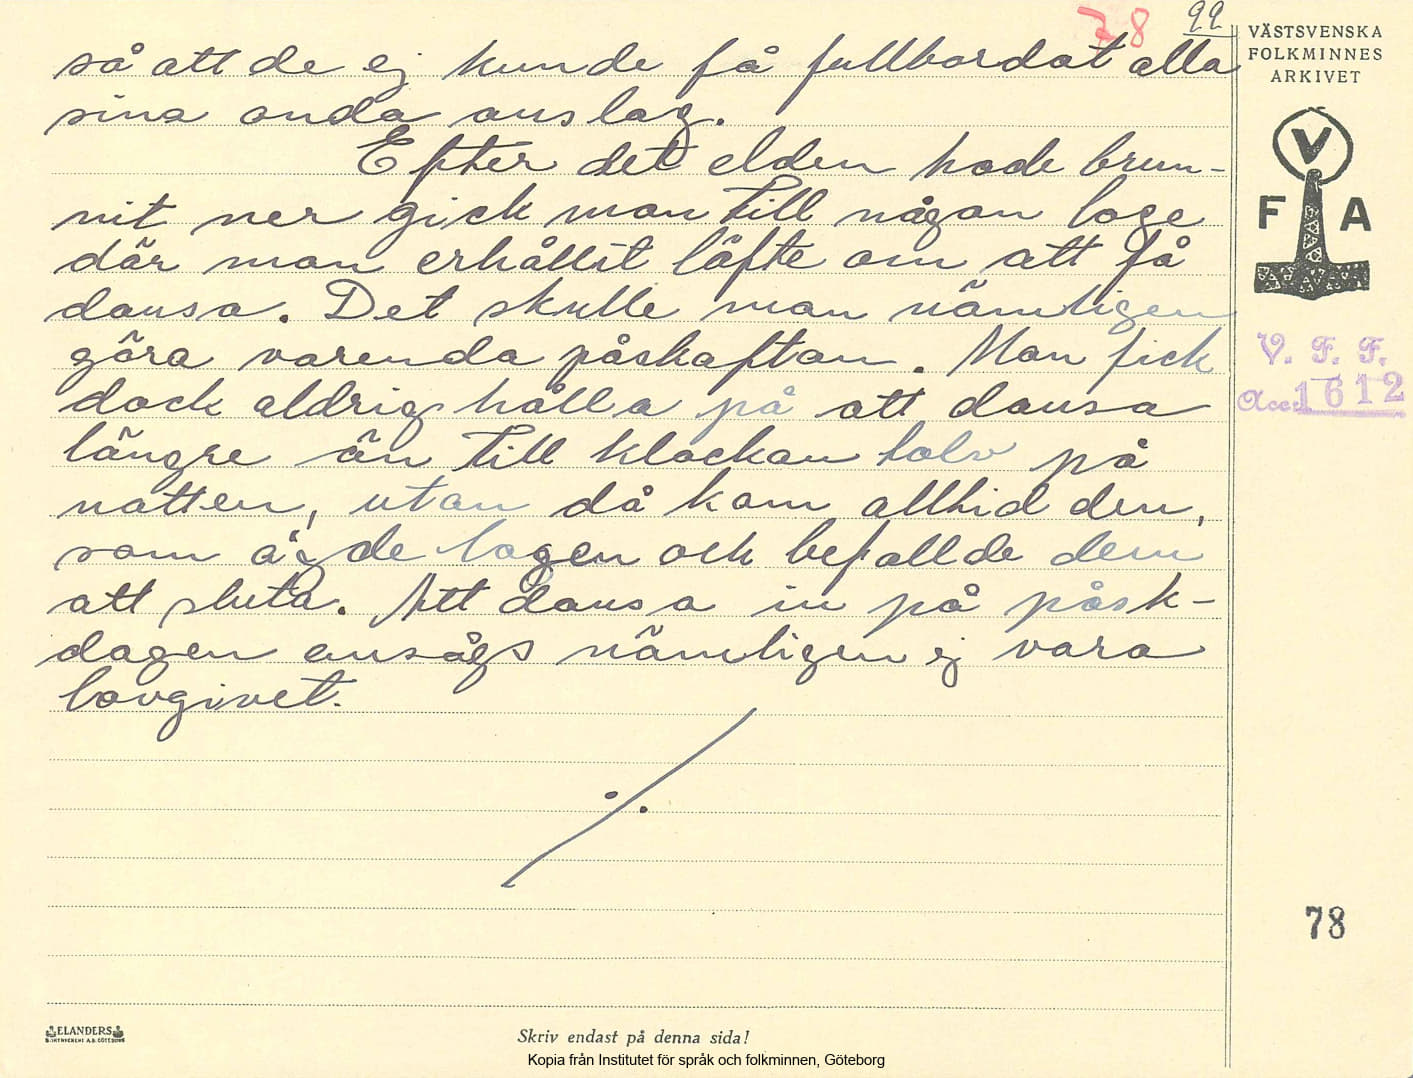 78 99
så att de ej kunde få fullbordat alla
sina onda anslag.
Efter det elden hade brun-
nit ner gick man till någon loge
där man erhållit löfte om att få
dansa. Det skulle man nämligen
göra varenda påskafton. Man fick
dock aldrig hålla på att dansa
längre än till klockan tolv på
natten, utan då kom alltid den,
som ägde logen och befallde dem
att sluta. Att dansa in på påsk-
dagen ansågs nämligen ej vara
lovgivet.
./.
VÄSTSVENSKA
FOLKMINNES
ARKIVET
V
F A
V. F. F.
Acc: 1612
78
ELANDERS
Skriv endast på denna sida!
Kopia från Institutet för språk och folkminnen, Göteborg